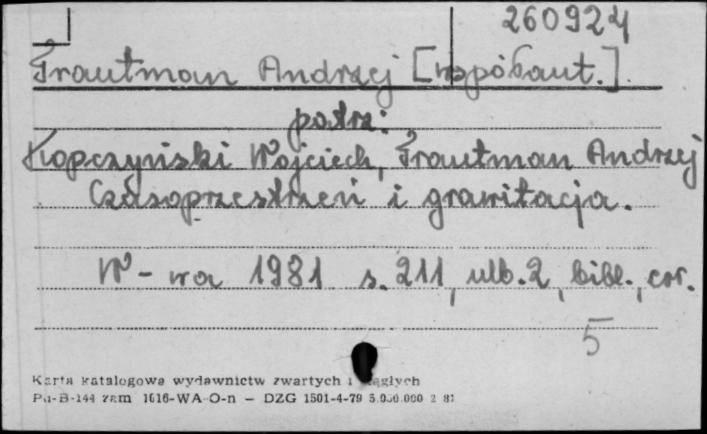 260924
Trautman Andrzej [współaut.]
patrz:
Kopczyński Wojciech, Trautman Andrzej
Czasoprzestrzeń i grawitacja.
W-wa 1981 s. 211, ulb. 2, bibl.,
5
Karta katalogowa wydawnictw zwartych i ciągłych
Pu-B-144 zam 1616-WA-O-n — DZG 1501-4-79 5.000.000 2 81